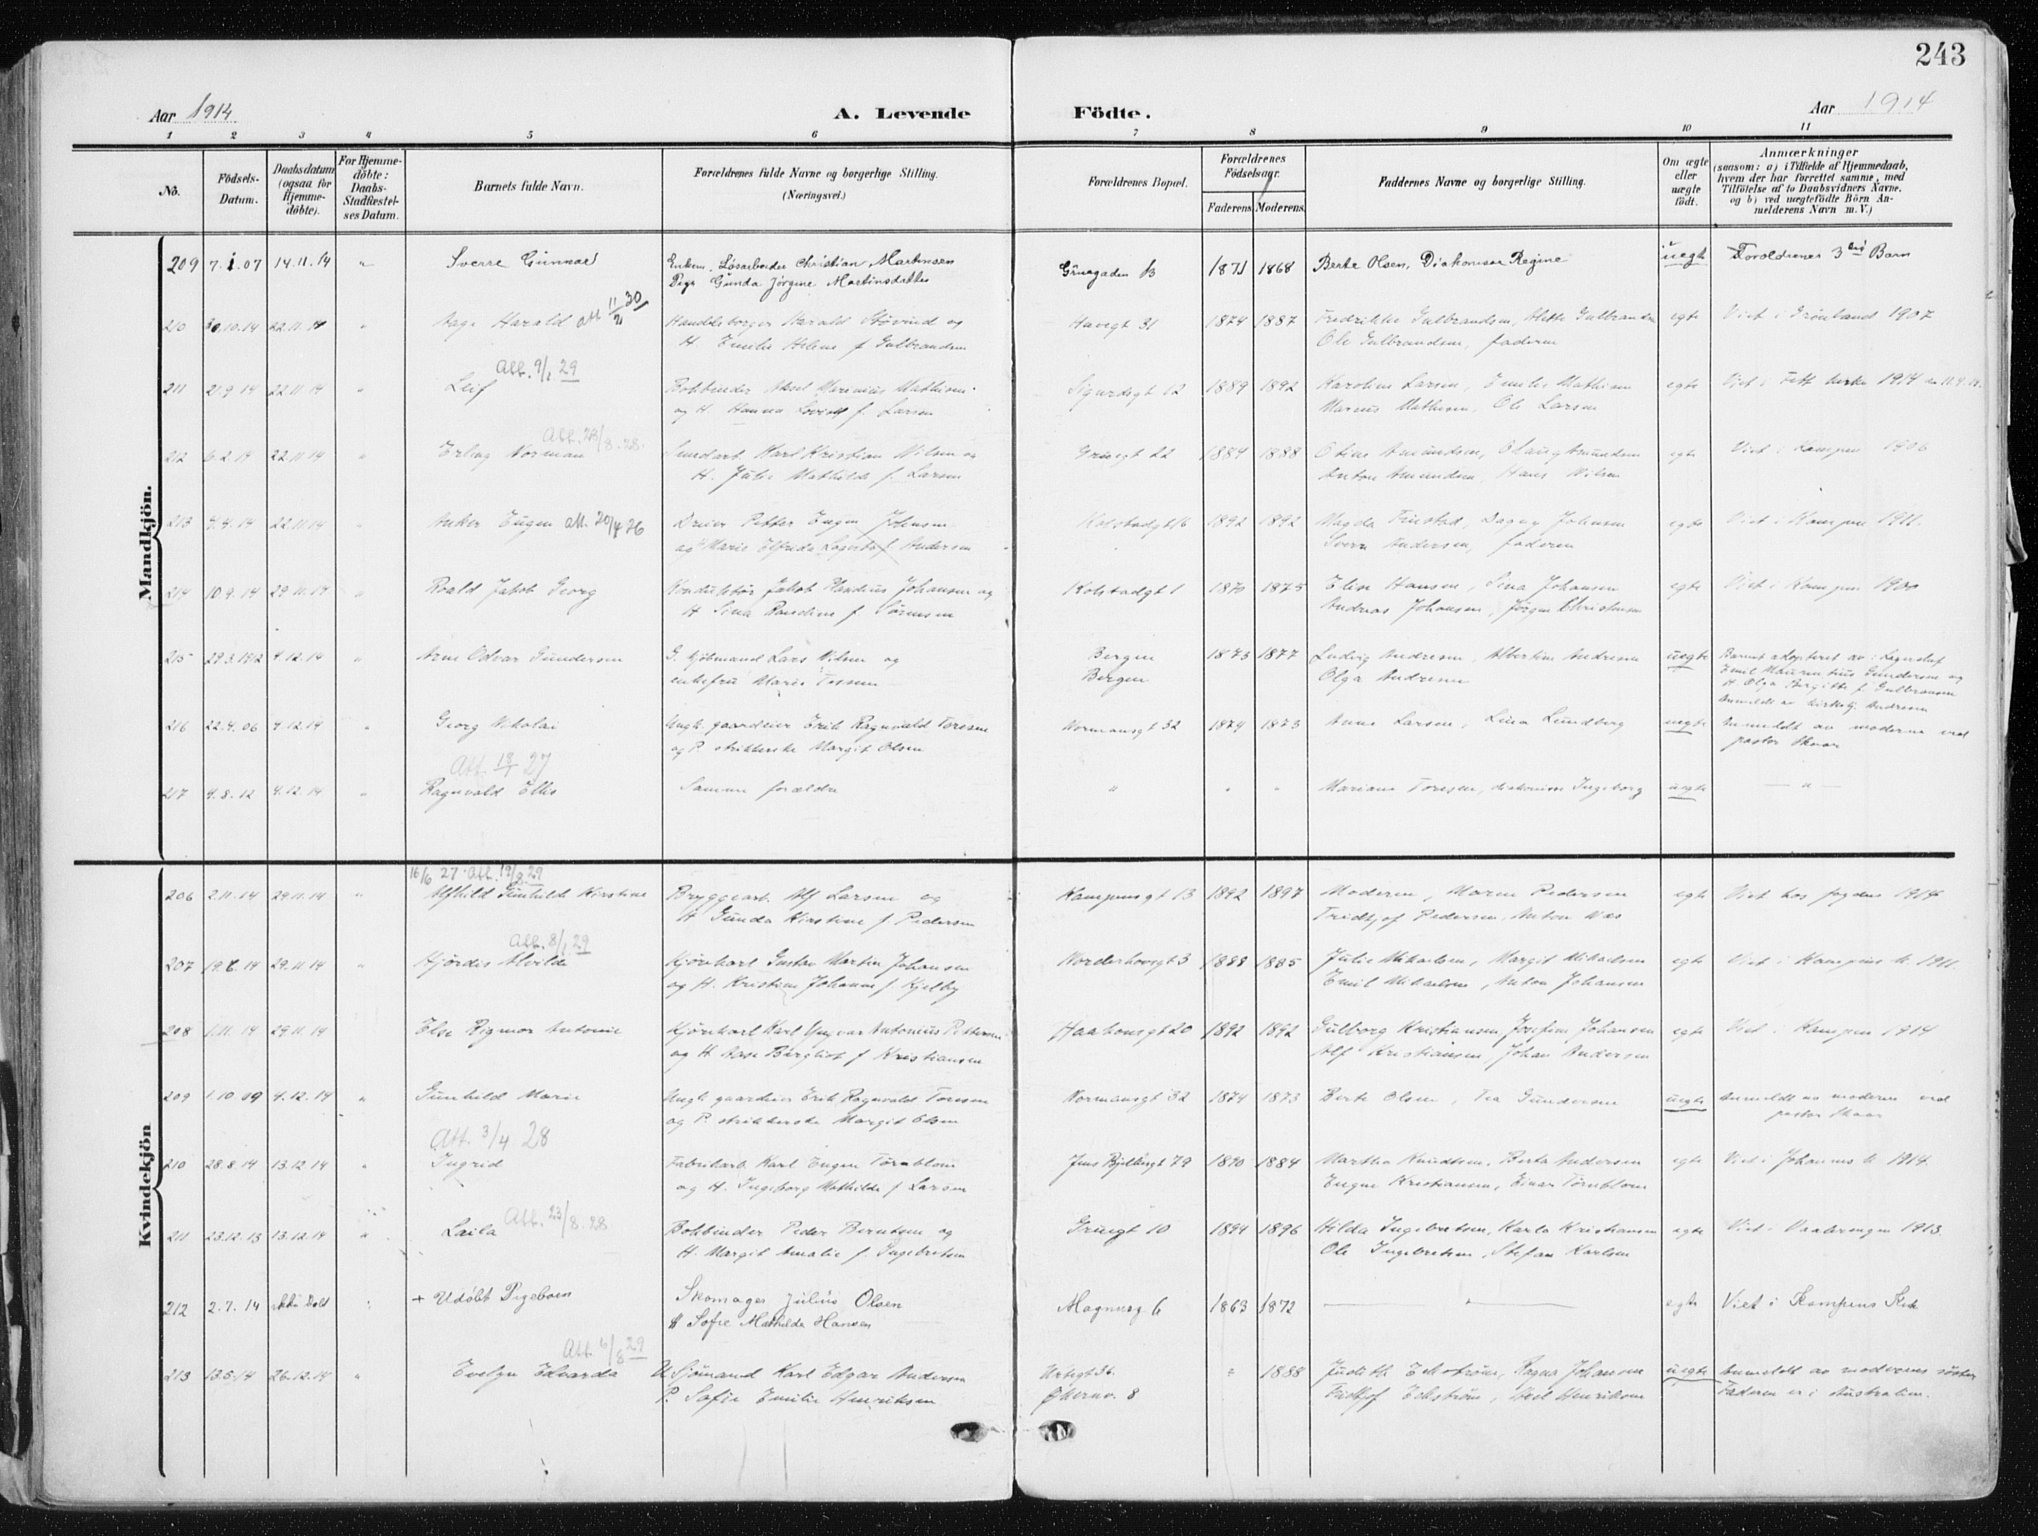 243
Aar 1914 A. Levende Födte. Aar 1914
1 2 3 4 5 6 7 8 9 10 11
No. Födsels-Datum. Daabsdatum (ogsaa for Hjemmedöbte). For Hjemmedöbte: Daabs-Stadfæstelses Datum. Barnets fulde Navn. Forældrenes fulde Navne og borgerlige Stilling. (Næringsvei.) Forældrenes Bopæl. Forældrenes Födselsaar. Faderens Moderens. Faddernes Navne og borgerlige Stilling. Om ægte eller uægte födt. Anmærkninger (saasom: a) i Tilfælde af Hjemmedaab, hvem der har forrettet samme, med Tilföielse af to Daabsvidners Navne, og b) ved uægtefödte Börn Anmelderens Navn m. V.)
Mandkjön.
209 7.1.07 14.11.14 " Sverre Gunnar Enkem. Løsarbeider Christian Martinsen Grüegaden 13 1871 1868 Berte Olsen, Diakonisse Regine uegt Forældrenes 3die Barn
Pige Gunda Jørgine Martinsdatter
210 30.10.14 22.11.14 " Aage Harald att 11/2 30 Handelsborger Harald Støvind og Hauegt 31 1874 1887 Fredrikke Gulbrandsen, Gulbrandsen egte Viet i Grønland 1907
H. Emilie Helene f. Gulbrandsen Ole Gulbrandsen, faderen
Att. 9/1 29
211 21.9.14 22.11.14 " Leif Bokbinder Aksel Marenius Mathisen Sigurdsgt 12 1889 1892 Karoline Larsen, Emilie Mathisen egte Viet i Fett kirke 1914
og H. Hanna f. Larsen Marius Mathisen, Ole Larsen
Att. 28/8.28.
212 6.2.14 22.11.14 " Erling Norman Karl Kristian Nilsen og Grüegt 22 1884 1888 Otine Amundsen, Olaug Amundsen egte Viet i Kampen 1906
H. Julie Mathilde f. Larsen Anton Amundsen, Hans Nilsen
213 4.4.14 22.11.14 " Anker Eugen att. 20/4 26 Dreier Petter Eugen Johnsen Kolstadgt 16 1892 1892 Magda Finstad, Dagny Johnsen egte Viet i Kampen 1911.
og Marie Elfrida f. Andersen Sverre Andersen, faderen
214 10.9.14 29.11.14 " Roald Jakob Georg Konduktør Jakob Johansen og Kolstadgt 1 1870 1875 Elise Hansen, Sina Johansen egte Viet i Kampen 1900
H. Sina f. Sørensen Andreas Johansen, Jørgen Christensen
215 29.3.1912 4.12.14 " Arne Odvar Gundersen G. kjøbmand Lars Nilsen og Bergen 1873 1877 Ludvig Andresen, Albertine Andresen uegte Barnet adopteret av: Lagerchef
enkefru Marie Tessem Bergen Olga Andresen Emil Mauritius Gundersen og
H. Olga Birgitte f. Gulbransen
Anmeldt av Andresen
216 22.4.06 4.12.14 " Georg Nikolai Ungk. gaardeier Erik Ragnvald Toresen Normansgt 32 1874 1873 Anna Larsen, Lina Lundberg uegte Anmeldt av moderen ved
og P. strikkerske Margit Olsen pastor Skaar
Att. 19/1 27
217 4.8.12 4.12.14 " Ragnvald Ellis Samme forældre " " " Mariane Toresen, diakonisse Ingeborg uegte — " —
Kvindekjön
16/6 27 Att. 19/8 29
206 2.11.14 29.11.14 " Alfhild Gunhilde Kirstine Bryggearb. Alf Larsen og Kampensgt 13 1892 1897 Moderen, Maren Pedersen egte Viet hos fogden 1914
H. Gunda Kirstine f. Pedersen Fridtjof Pedersen, Anton Næs
Att. 8/1 29
207 19.6.14 29.11.14 " Hjørdis Alvilde Kjørekarl Gustav Martin Johansen Norderhovsgt 3 1888 1885 Julie Mikaelsen, Margit Mikaelsen egte Viet i Kampens k. 1911.
og H. Kristine Johanne f. Kjelby Emil Mikaelsen, Anton Johansen
208 1.11.14 29.11.14 Else Rigmor Antonie Kjørekarl Karl Yngvar Antonius Pettersen Haakonsgt 20 1892 1892 Gulborg Kristiansen, Josefine Johansen egte Viet i Kampen 1914
og H. Aase Bergliot f. Kristiansen Alf Kristiansen, Johan Andersen
209 1.10.09 4.12.14 " Gunhild Marie Ungk. gaardeier Erik Ragnvald Toresen Normansgt 32 1874 1873 Berte Olsen, Tea Gundersen uegte Anmeldt av moderen ved
og P. strikkerske Margit Olsen pastor Skaar
Att. 3/4 28
210 28.8.14 13.12.14 " Ingrid Fabrikarb. Karl Eugen Tørnblom Jens Bjelkesgt 79 1890 1884 Martha Knudtsen, Berta Andersen egte Viet i Johannes k. 1914.
og H. Ingeborg Mathilde f. Larsen Eugen Kristiansen, Einar Tørnblom
211 23.12.13 13.12.14 " Laila Att. 23/8.28 Bokbinder Peder Berntsen og Grüegt 10 1894 1896 Hilda Ingebretsen, Karla Kristiansen egte Viet i Vaalerengen 1913.
H. Margit Amalie f. Ingebretsen Ole Ingebretsen, Stefan Karlsen
212 2.7.14 ikke Døbt " + Udøbt Pigebarn Skomager Julius Olsen Magnusg 6 1863 1872 — " — egte Viet i Kampens Kirke
H Sofie Mathilde Hansen
Att. 6/8 29
213 13.5.14 26.12.14 " Evelyn Edvarda U. Sjømand Karl Edgar Andersen Urtegt 36 " 1888 Judith Ekstrøm, Ragna Johansen uegte Anmeldt av moderens søster
P. Sofie Emilie Henriksen Økernv. 8 Fridtjof Ekstrøm, Axel Henriksen Faderen er i Australien.